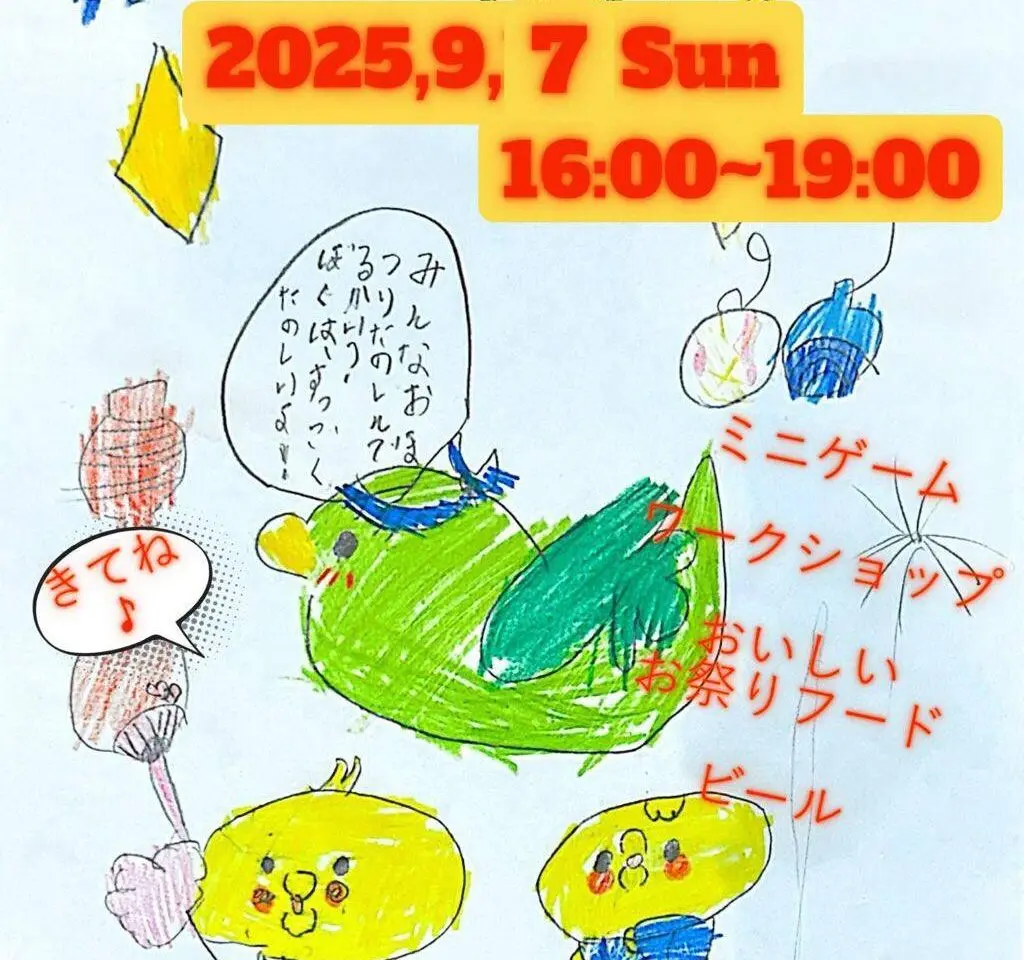 2025,9, 7 Sun
16:00~19:00
みんなおほ
つりだのしんで
るかい?
ぼくは、すっごく
たのしいよ!!
きてね
♪
ミニゲーム
ワークショップ
おいしい
お祭りフード
ビール